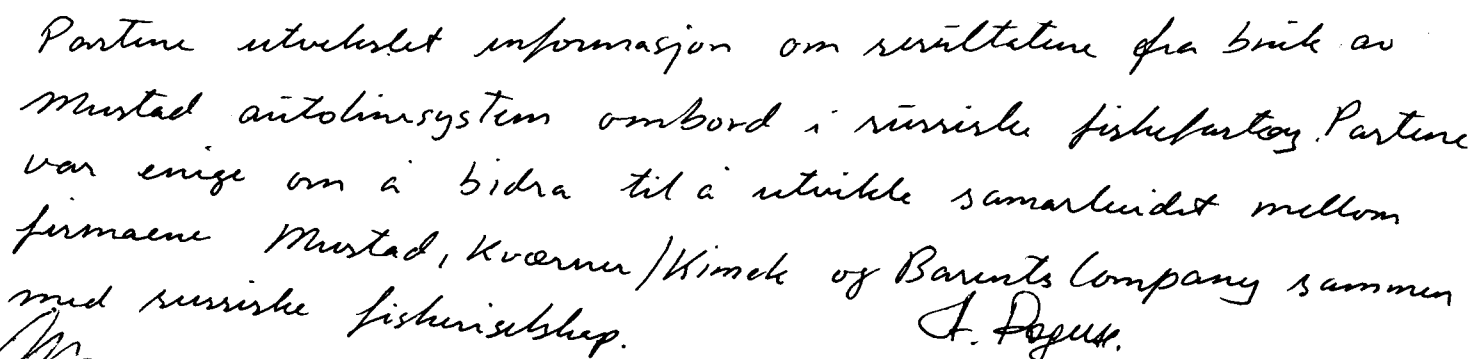 Partene utvekslet informasjon om resultatene fra bruk av
Mustad autolinesystem ombord i russiske fiskefartøy. Partene
var enige om å bidra til å utvikle samarbeidet mellom
firmaene Mustad, Kværner/Kimek og Barents Company sammen
med russiske fiskeriselskap.